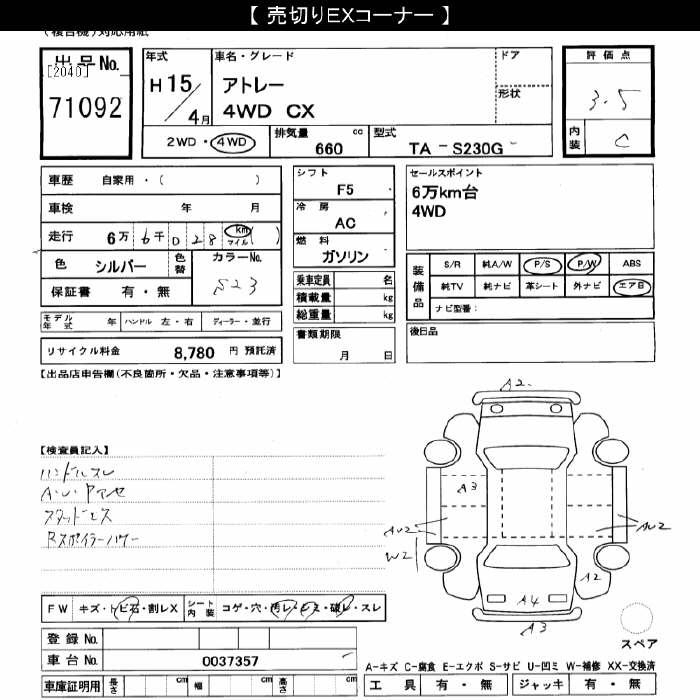 【 売切りEXコーナー 】
(複合機)対応用紙
出品No.
[2040]
71092
年式
H 15/4月
車名・グレード
アトレー
4WD CX
ドア
形状
評価点
3.5
内装
C
2WD・4WD
排気量 660 cc
型式 TA - S230G
車歴 自家用・( )
車検 年 月
走行 6万6千028 km マイル ( )
色 シルバー
色替
カラーNo.
S23
保証書 有・無
シフト
F5
冷房
AC
燃料
ガソリン
乗車定員 名
積載量 kg
総重量 kg
書類期限
月 日
セールスポイント
6万km台
4WD
装備品
S/R 純A/W P/S P/W ABS
純TV 純ナビ 革シート 外ナビ エアB
ナビ型番:
後日品
モデル年式 年 ハンドル 左・右 ディーラー・並行
リサイクル料金 8,780 円 預託済
【出品店申告欄(不良箇所・欠品・注意事項等)】
【検査員記入】
ハンドルスレ
スタッドレス
A2
A3
AU2
AU2
W2
A2
A4
A3
FW キズ・トビ石・割レX
シート内装 コゲ・穴・汚レ・シミ・破レ・スレ
登録No.
車台No. 0037357
車庫証明用 長さ cm 幅 cm 高さ cm
スペア
A-キズ C-腐食 E-エクボ S-サビ U-凹ミ W-補修 XX-交換済
工具 有・無 ジャッキ 有・無